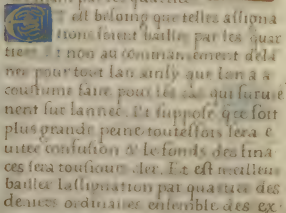 est besoing que telles assigna
tions soient baillees par les quar
tiers Et non au commancement de la
nee pour tout lan ainsy que lon a a
coustume faire pour les cas qui survie
nent sur lannee. Et suppose que soit
plus grande peine toutesfois sera e
uitee confusion & le fonds des fina
ces sera tousiours cler. Et est meilleur
bailler lassignation par quartier des
deniers ordinaires ensemble des ex